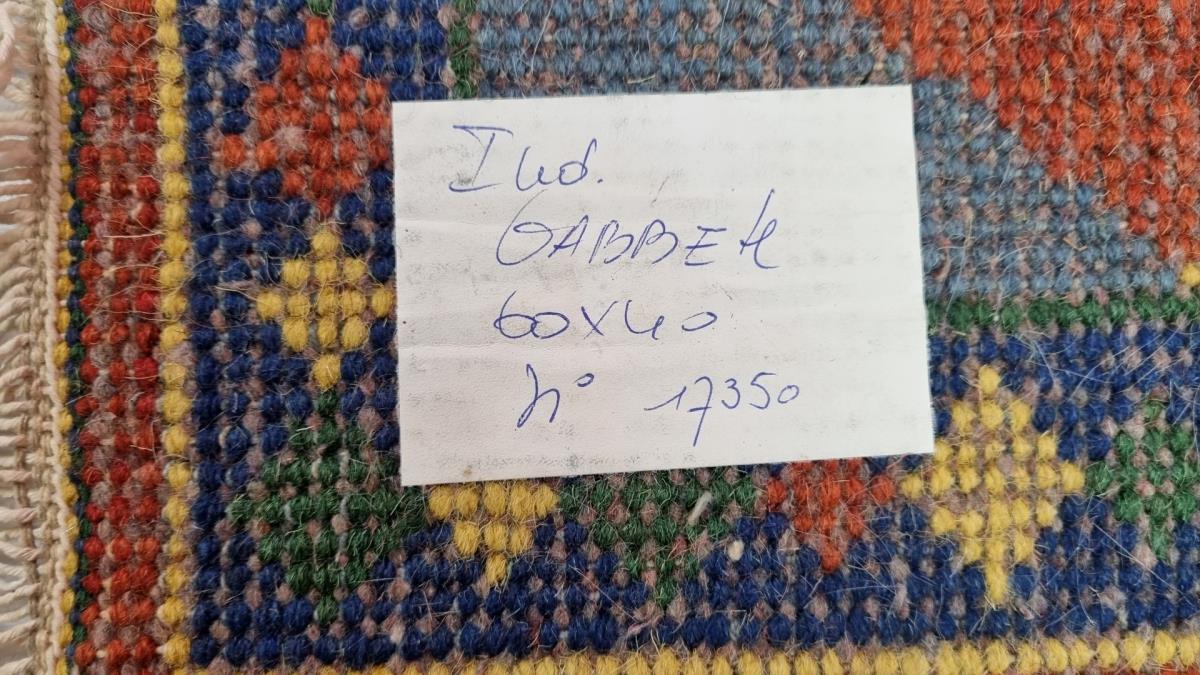 Ind.
GABBEH
60x40
n° 17350